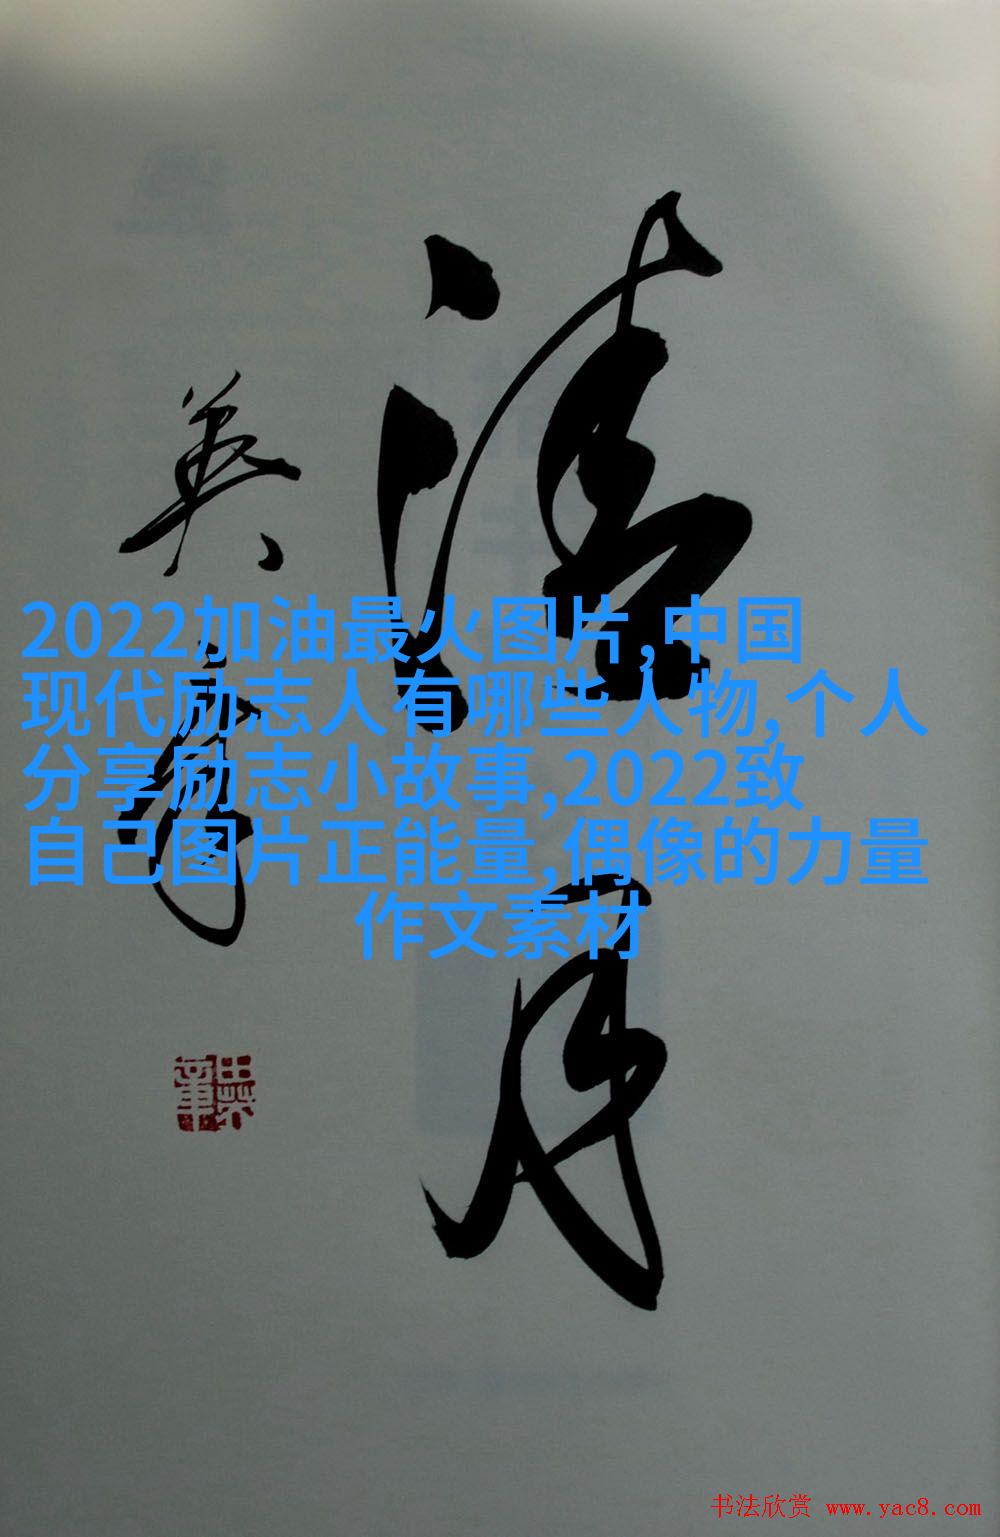 清月
英章
2022加油最火图片,中国
现代励志人有哪些人物,个人
分享励志小故事,2022致
自己图片正能量,偶像的力量
作文素材
书法欣赏 www.yac8.com